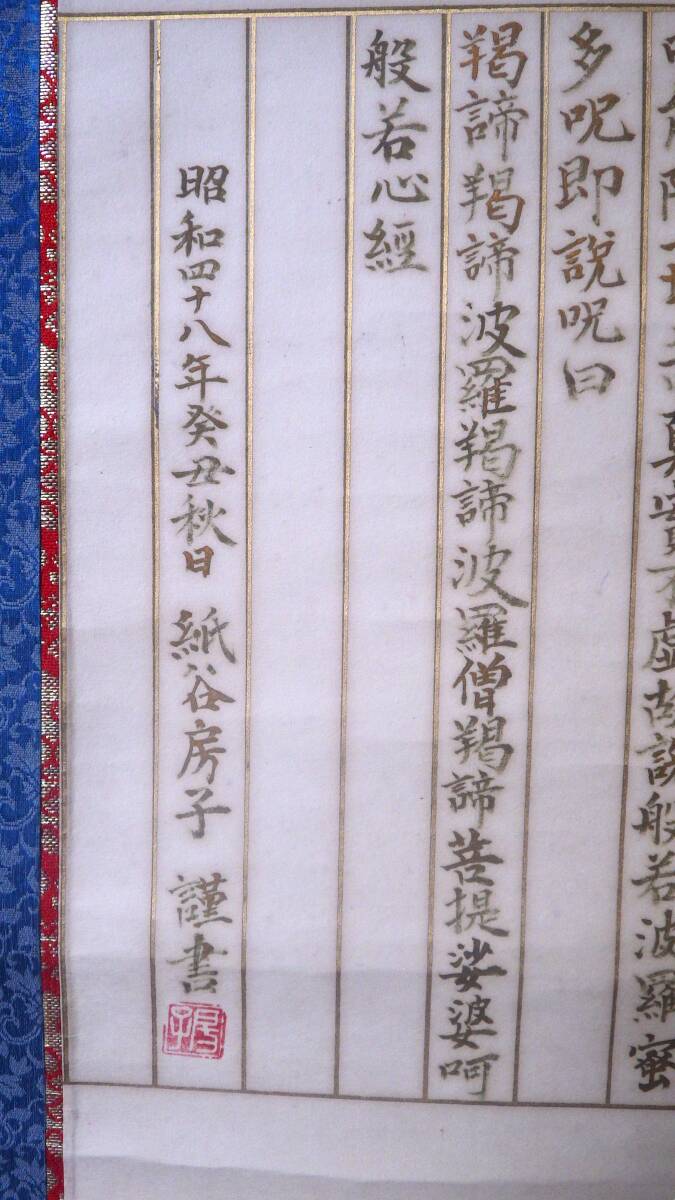 呪能除一切苦真實不虚故說般若波羅蜜
多呪即說呪曰
羯諦羯諦波羅羯諦波羅僧羯諦菩提娑婆呵
般若心經
昭和四十八年癸丑秋日 紙谷房子 謹書